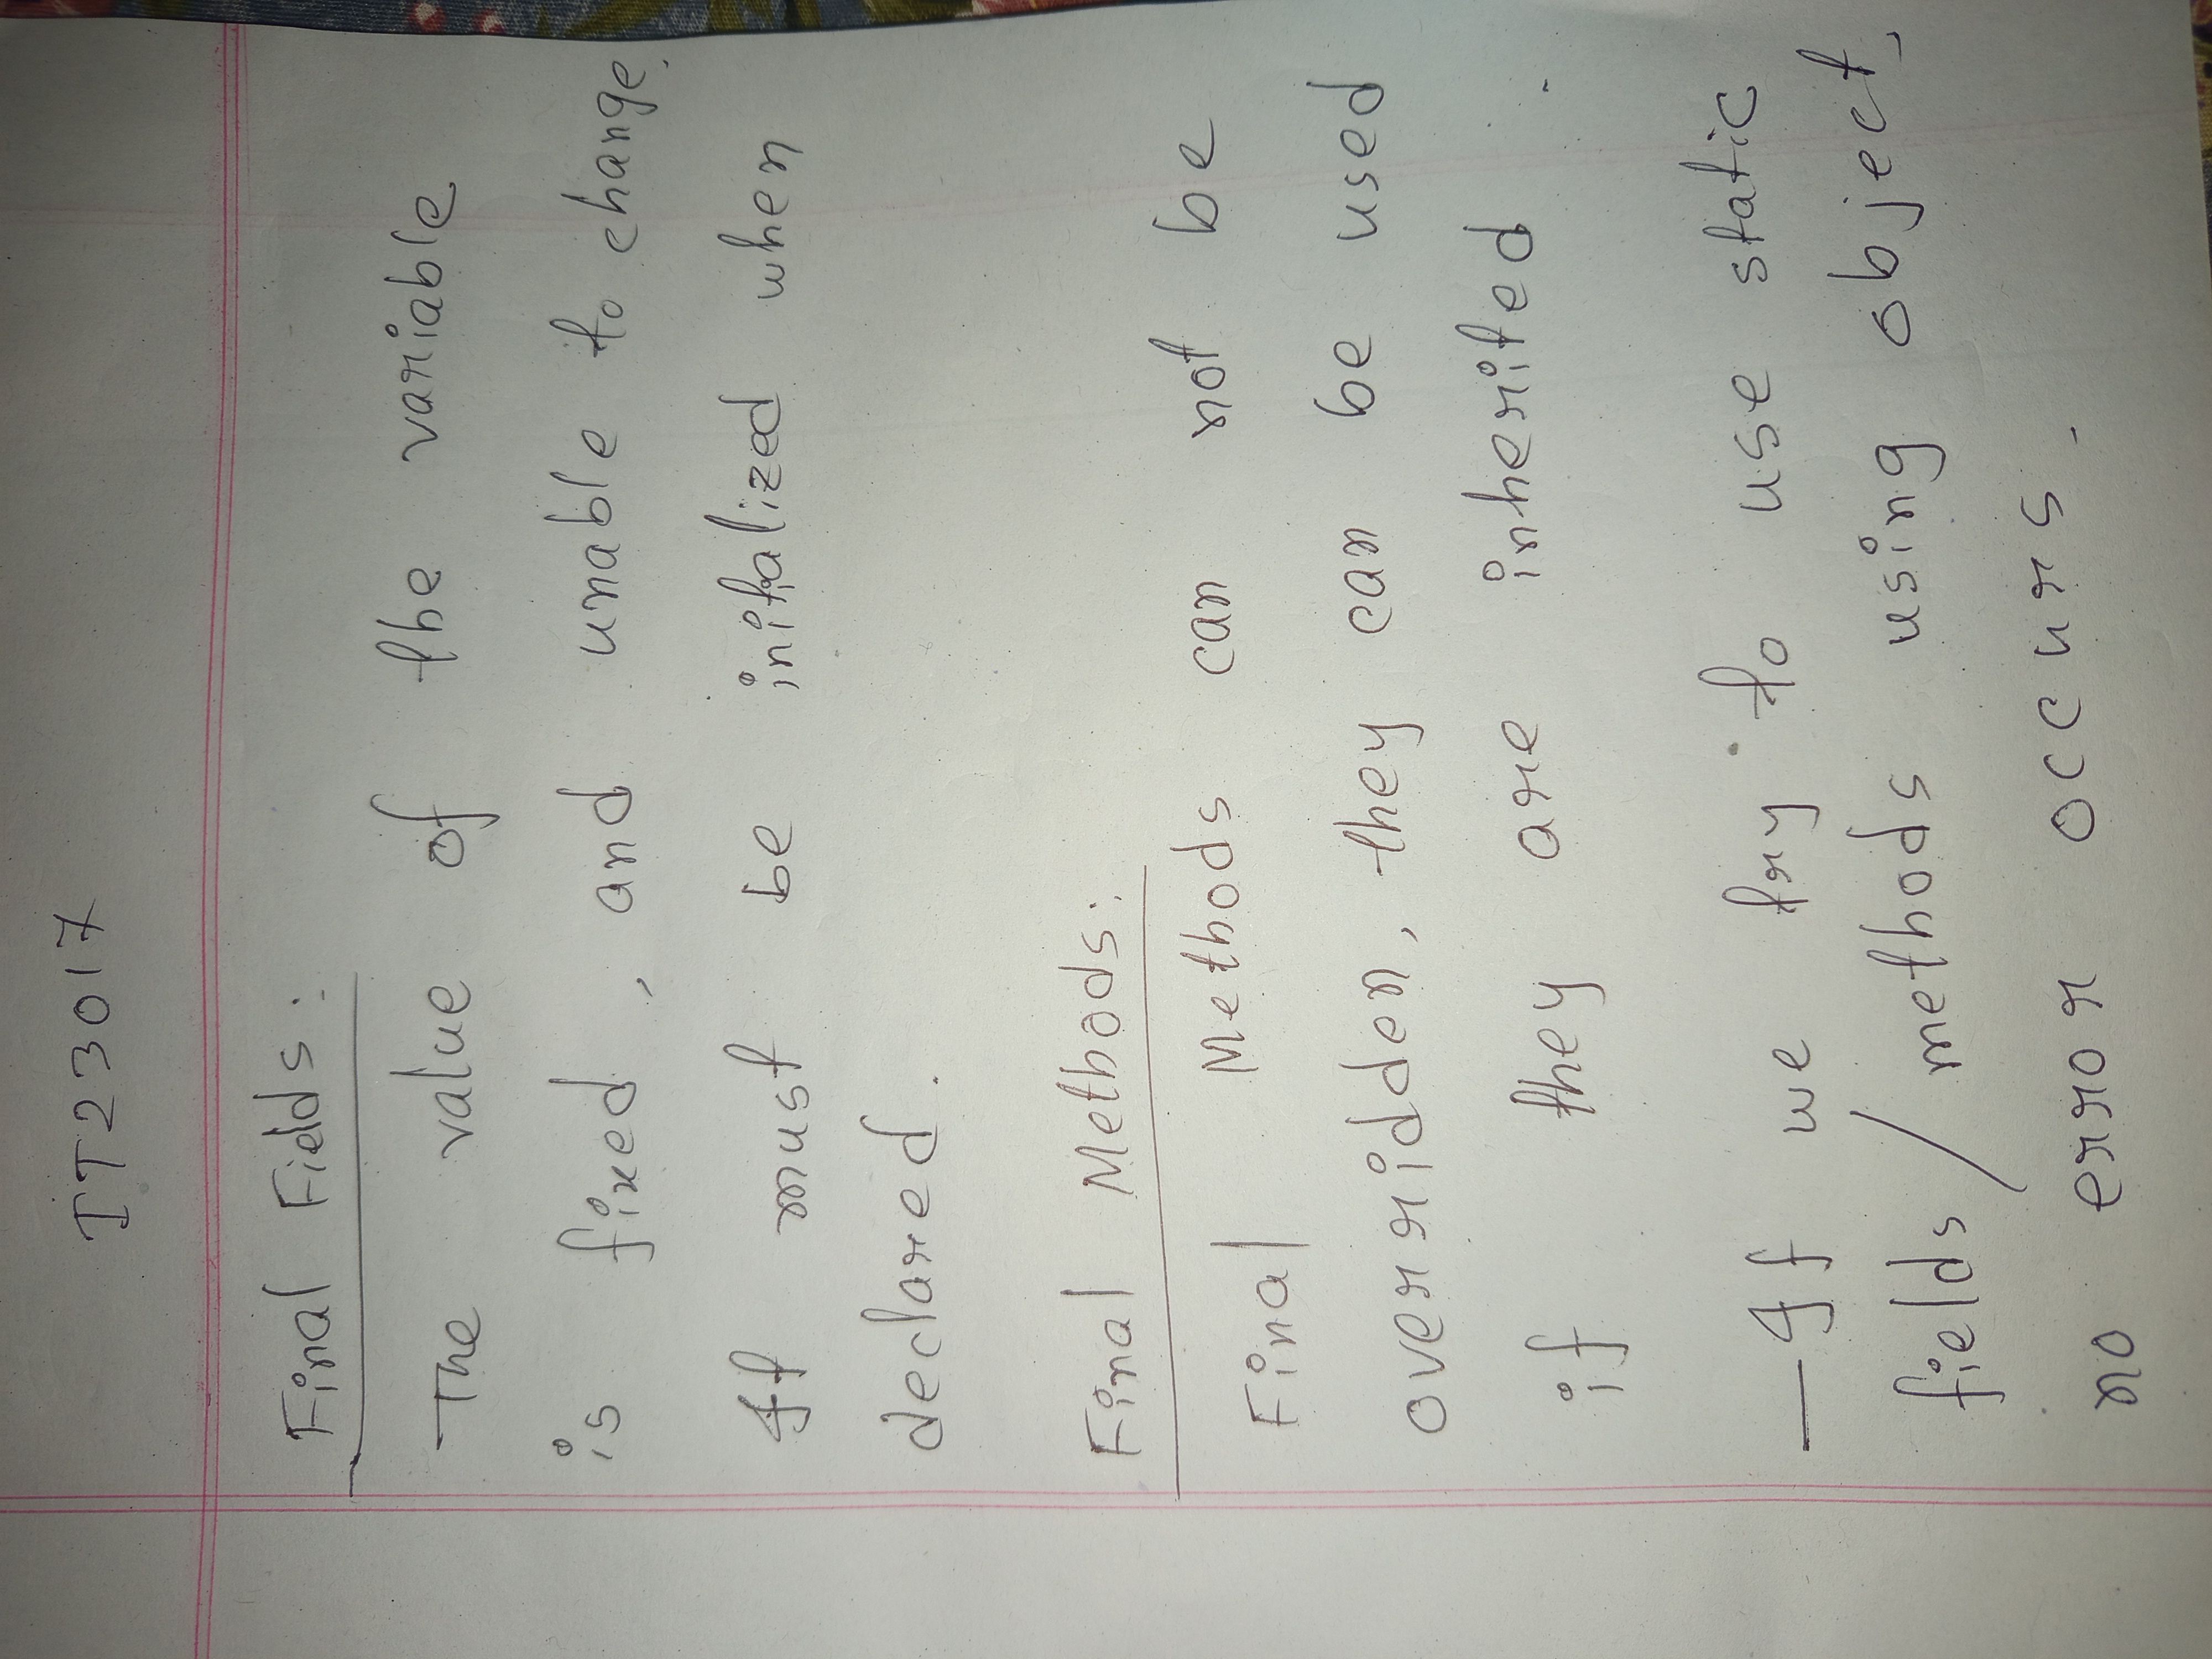 IT23017
Final Fields:
The value of the variable
is fixed, and unable to change.
It must be initialized when
declared.
Final Methods:
Final Methods can not be
overridden, they can be used
if they are inherited.
—If we try to use static
fields/methods using object,
no error occurs.